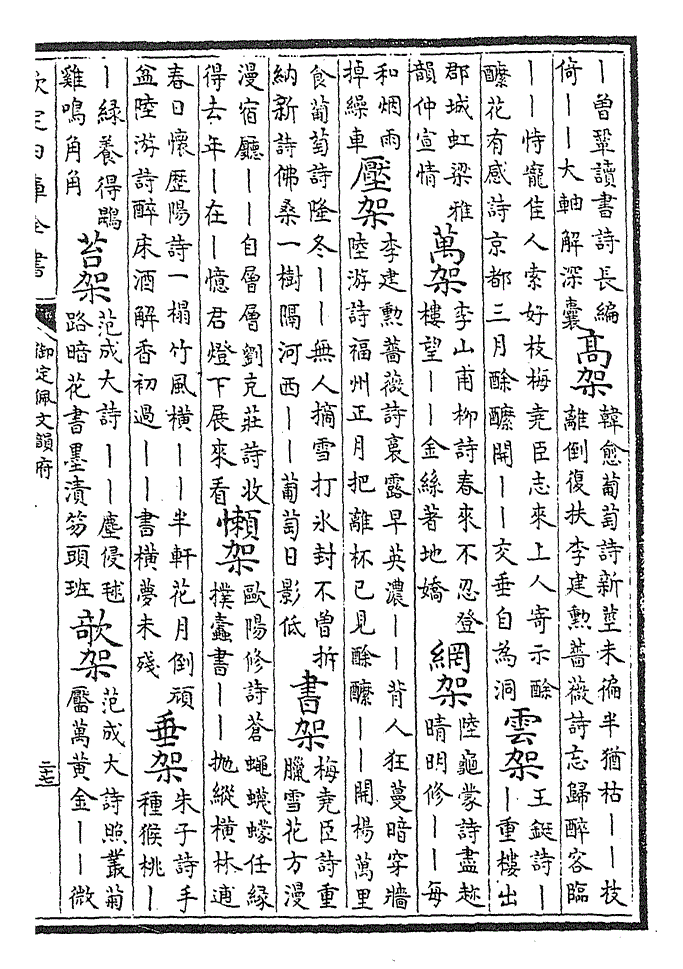 丨曾鞏讀書詩長編
倚丨丨大軸解深囊
高架
韓愈葡萄詩新莖未徧半猶枯丨丨枝
離倒復扶李建勲薔薇詩忘歸醉客臨
丨丨恃寵佳人索好枝梅堯臣志來上人寄示酴
醾花有感詩京都三月酴醾開丨丨交垂自為洞
雲架
王鋌詩丨
丨重樓出
郡城虹梁雅
韻仲宣情
萬架
李山甫柳詩春來不忍登
樓望丨丨金絲著地嬌
網架
陸龜蒙詩盡趂
晴明修丨丨每
和烟雨
掉繰車
壓架
李建勲薔薇詩裛露早英濃丨丨背人狂蔓暗穿牆
陸游詩福州正月把離杯已見酴醾丨丨開楊萬里
食葡萄詩隆冬丨丨無人摘雪打氷封不曾拆
納新詩佛桑一樹隔河西丨丨葡萄日影低
書架
梅堯臣詩重
臘雪花方漫
漫宿廳丨丨自層層劉克莊詩收
得去年丨在丨憶君燈下展來看
懶架
歐陽修詩蒼蠅蠛蠓任緣
撲蠹書丨丨抛縱橫林逋
春日懷歴陽詩一榻竹風橫丨丨半軒花月倒頑
盆陸游詩醉床酒解香初過丨丨書橫夢未殘
垂架
朱子詩手
種猴桃丨
丨緑養得鵾
雞鳴角角
苔架
范成大詩丨丨塵侵毬
路暗花書墨漬笏頭班
欹架
范成大詩照叢菊
靨萬黄金丨丨微
欽定四庫全書
御定佩文韻府
二七